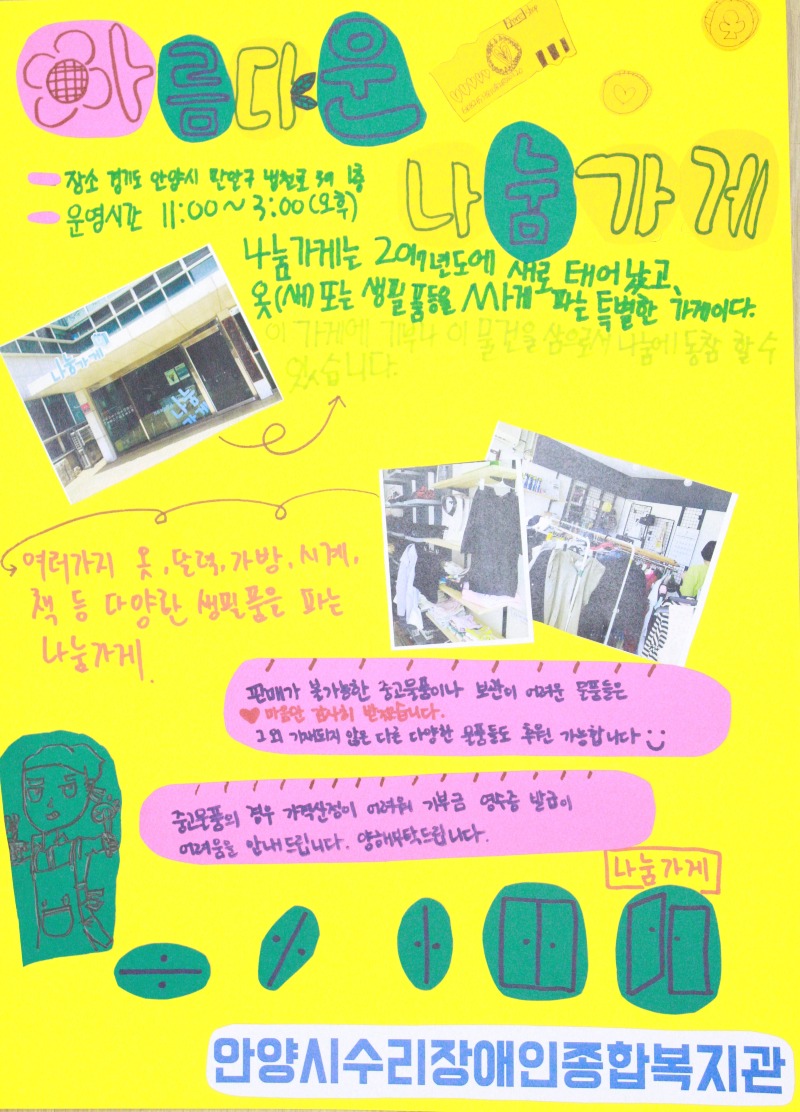 아름다운
나눔가게
장소 경기도 안양시 만안구 냉천로 39 1층
운영시간 11:00~3:00(오후)
나눔가게는 2019년도에 새로 태어났고,
옷(새) 또는 생필품등을 싸게 파는 특별한 가게이다.
이 가게에 기부나 이 물건을 삼으로서 나눔에 동참 할 수
있습니다.
나눔가게
나눔
가게
여러가지 옷, 달력, 가방, 시계,
책 등 다양한 생필품을 파는
나눔가게.
판매가 불가능한 중고물품이나 보관이 어려운 물품들은
마음만 감사히 받겠습니다.
그 외 기재되지 않은 다른 다양한 물품들도 후원 가능합니다
중고물품의 경우 가격산정이 어려워 기부금 영수증 발급이
어려움을 안내드립니다. 양해부탁드립니다.
나눔가게
안양시수리장애인종합복지관